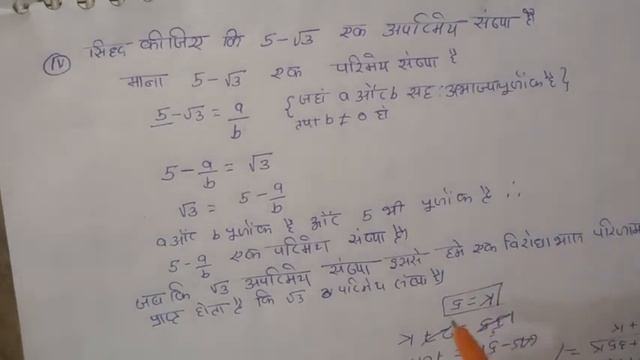 (iv) सिद्ध कीजिए कि 5-√3 एक अपरिमेय संख्या है
माना 5-√3 एक परिमेय संख्या है
5-√3 = a/b {जहां a और b सह:अभाज्य पूर्णांक है}
तथा b ≠ 0 हो
5 - a/b = √3
√3 = 5 - a/b
a और b पूर्णांक है और 5 भी पूर्णांक है ∴
5 - a/b एक परिमेय संख्या है।
जब कि √3 अपरिमेय संख्या इससे हमे एक विरोधाभास परिणाम
प्राप्त होता है कि √3 अपरिमेय संख्या है।